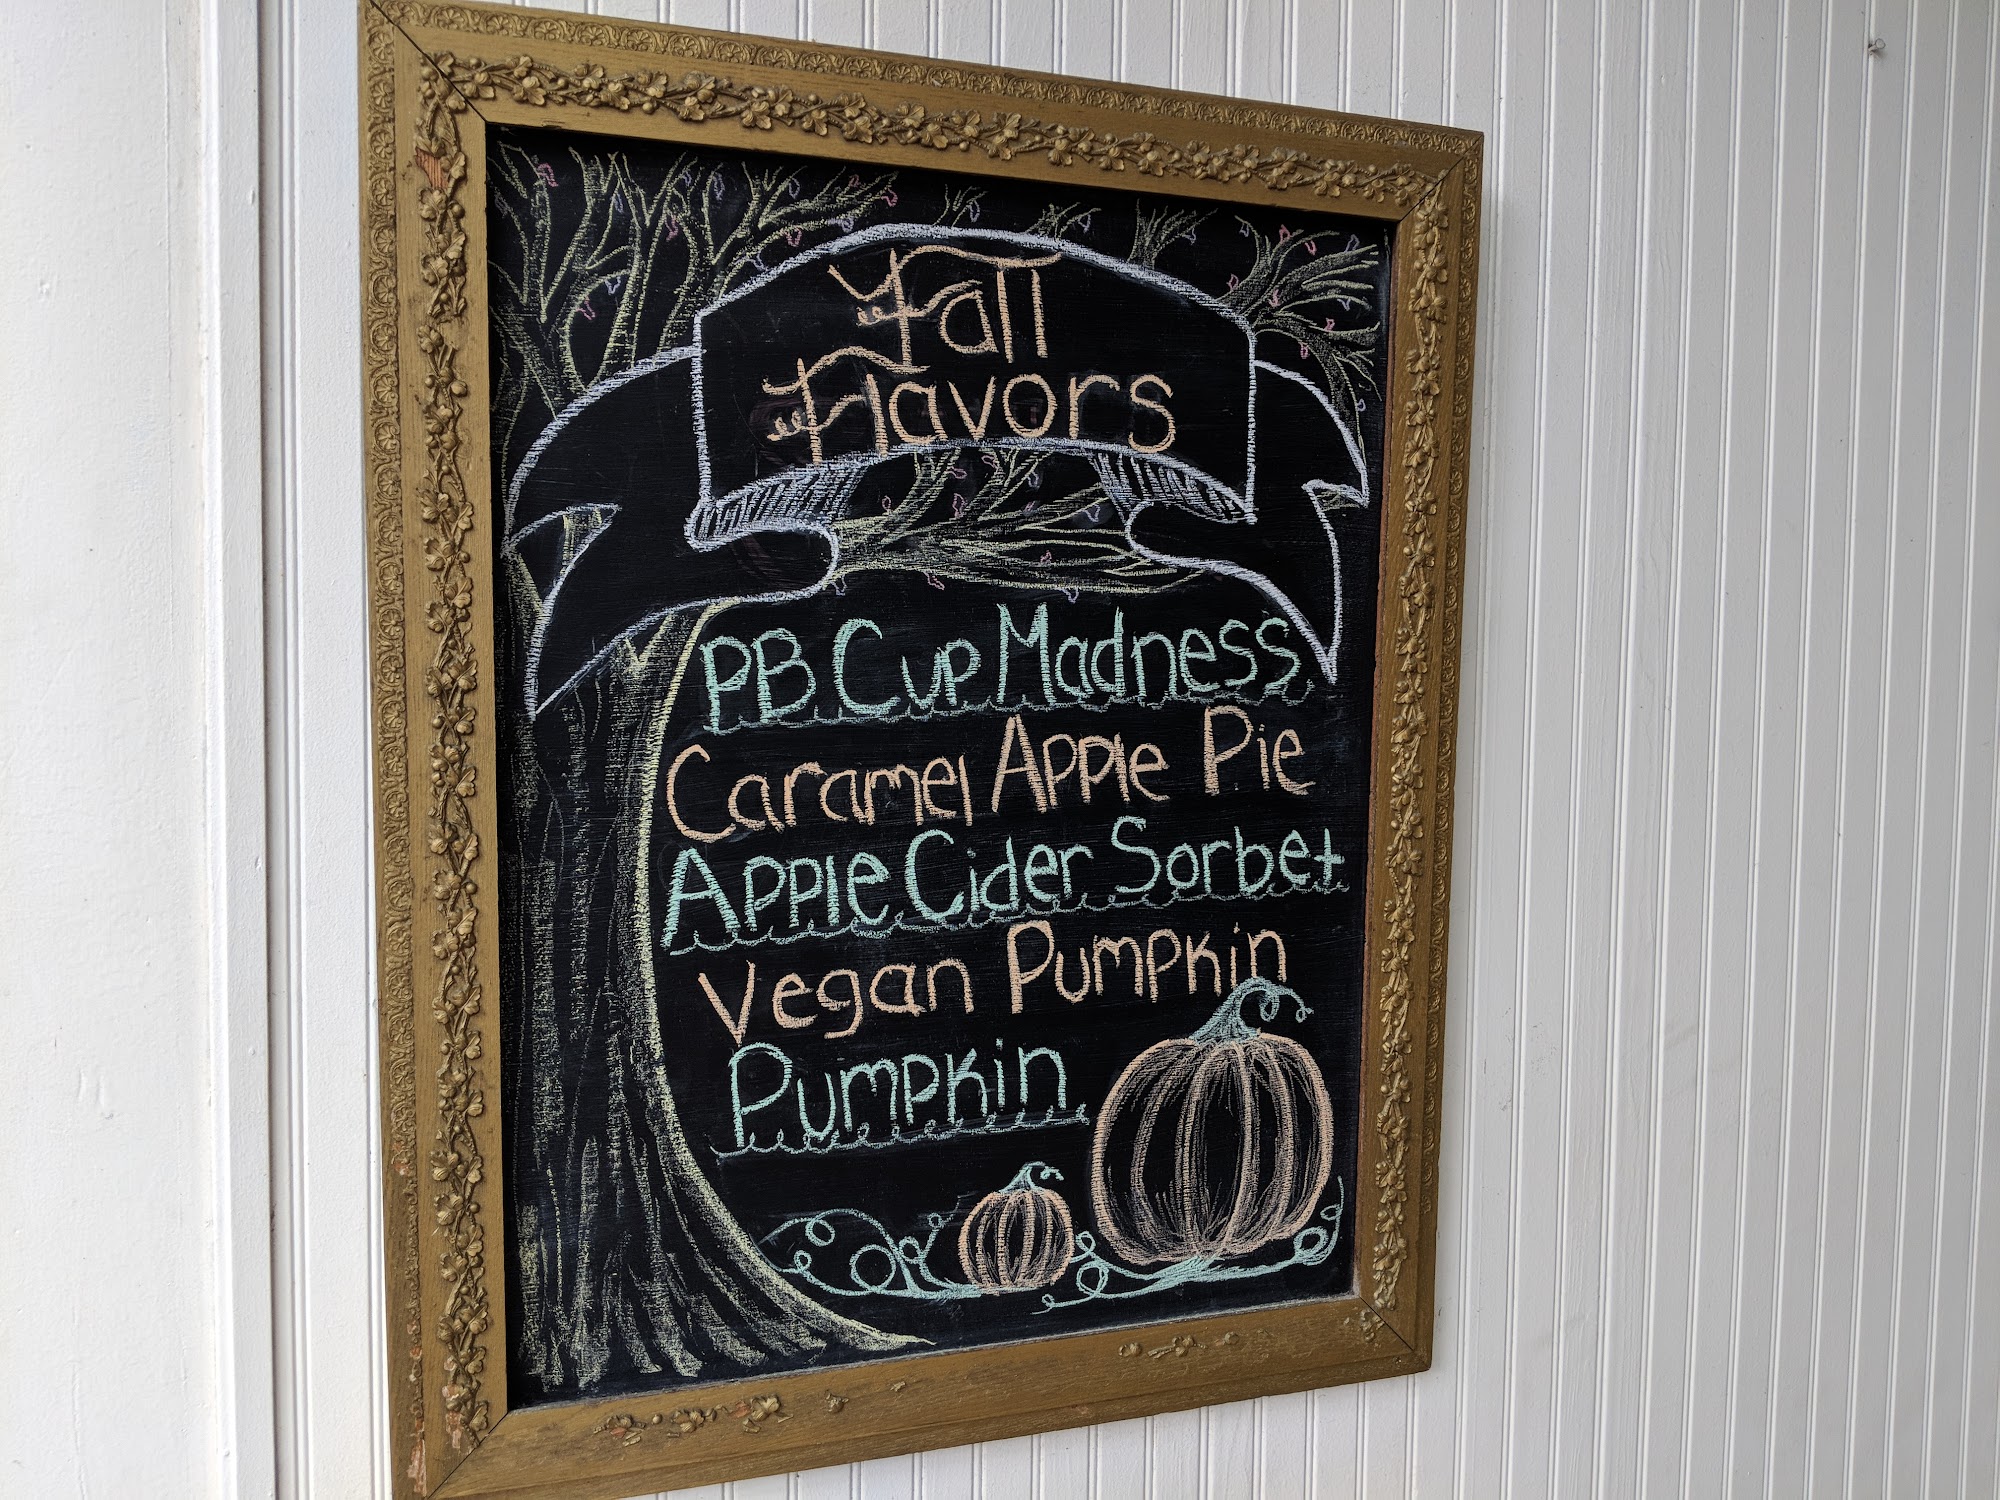 Fall
Flavors
PB Cup Madness
Caramel Apple Pie
Apple Cider Sorbet
Vegan Pumpkin
Pumpkin